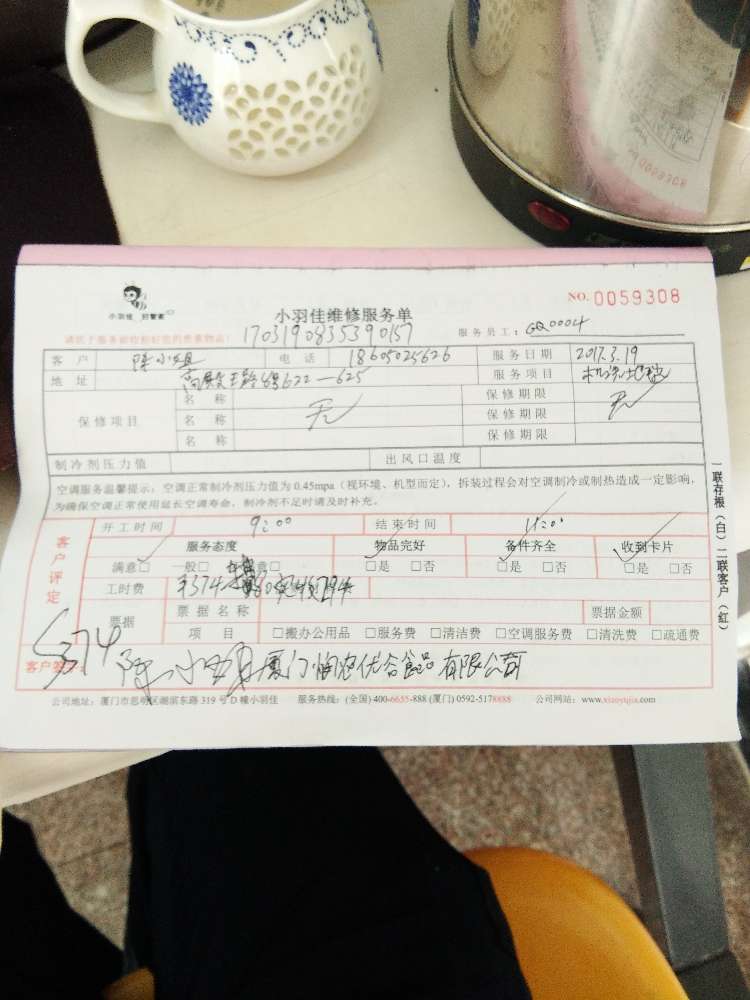 小羽佳 好管家
小羽佳维修服务单
NO. 0059308
170319083539 0157
服务员工: GQ0004
客户 陈小姐 电话 18605025626 服务日期 2017.3.19
地址 622—625 服务项目 机洗地毯
保修项目 名称 无 保修期限 无
名称 保修期限
名称 保修期限
制冷剂压力值 出风口温度
空调服务温馨提示:空调正常制冷剂压力值为 0.45mpa(视环境、机型而定),拆装过程会对空调制冷或制热造成一定影响,
为确保空调正常使用延长空调寿命,制冷剂不足时请及时补充。
客户评定
开工时间 9:00 结束时间 11:00
服务态度 物品完好 备件齐全 收到卡片
满意□ 一般□ 意□ □是 □否 □是 □否 □是 □否
工时费 ¥374
票据 票据名称 票据金额
项目 □搬办公用品 □服务费 □清洁费 □空调服务费 □清洗费 □疏通费
374
客户签 陈小姐 厦门 优谷食品有限公司
公司地址:厦门市思明区湖滨东路 319 号 D 幢小羽佳 服务热线:(全国) 400-6655-888 (厦门) 0592-5178888 公司网站:www.xiaoyujia.com
一联存根(白)二联客户(红)
0059308